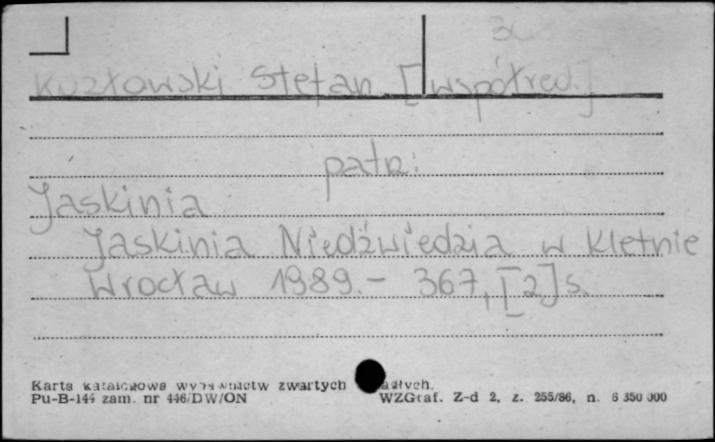 Kozłowski Stefan [współred.]
patrz:
Jaskinia
Jaskinia Niedźwiedzia w Kletnie
Wrocław 1989.- 367, [2] s.
Karta katalogowa wydawnictw zwartych
Pu-B-144 zam. nr 446/DW/ON WZGraf. Z-d 2, z. 255/86, n. 6 350 000